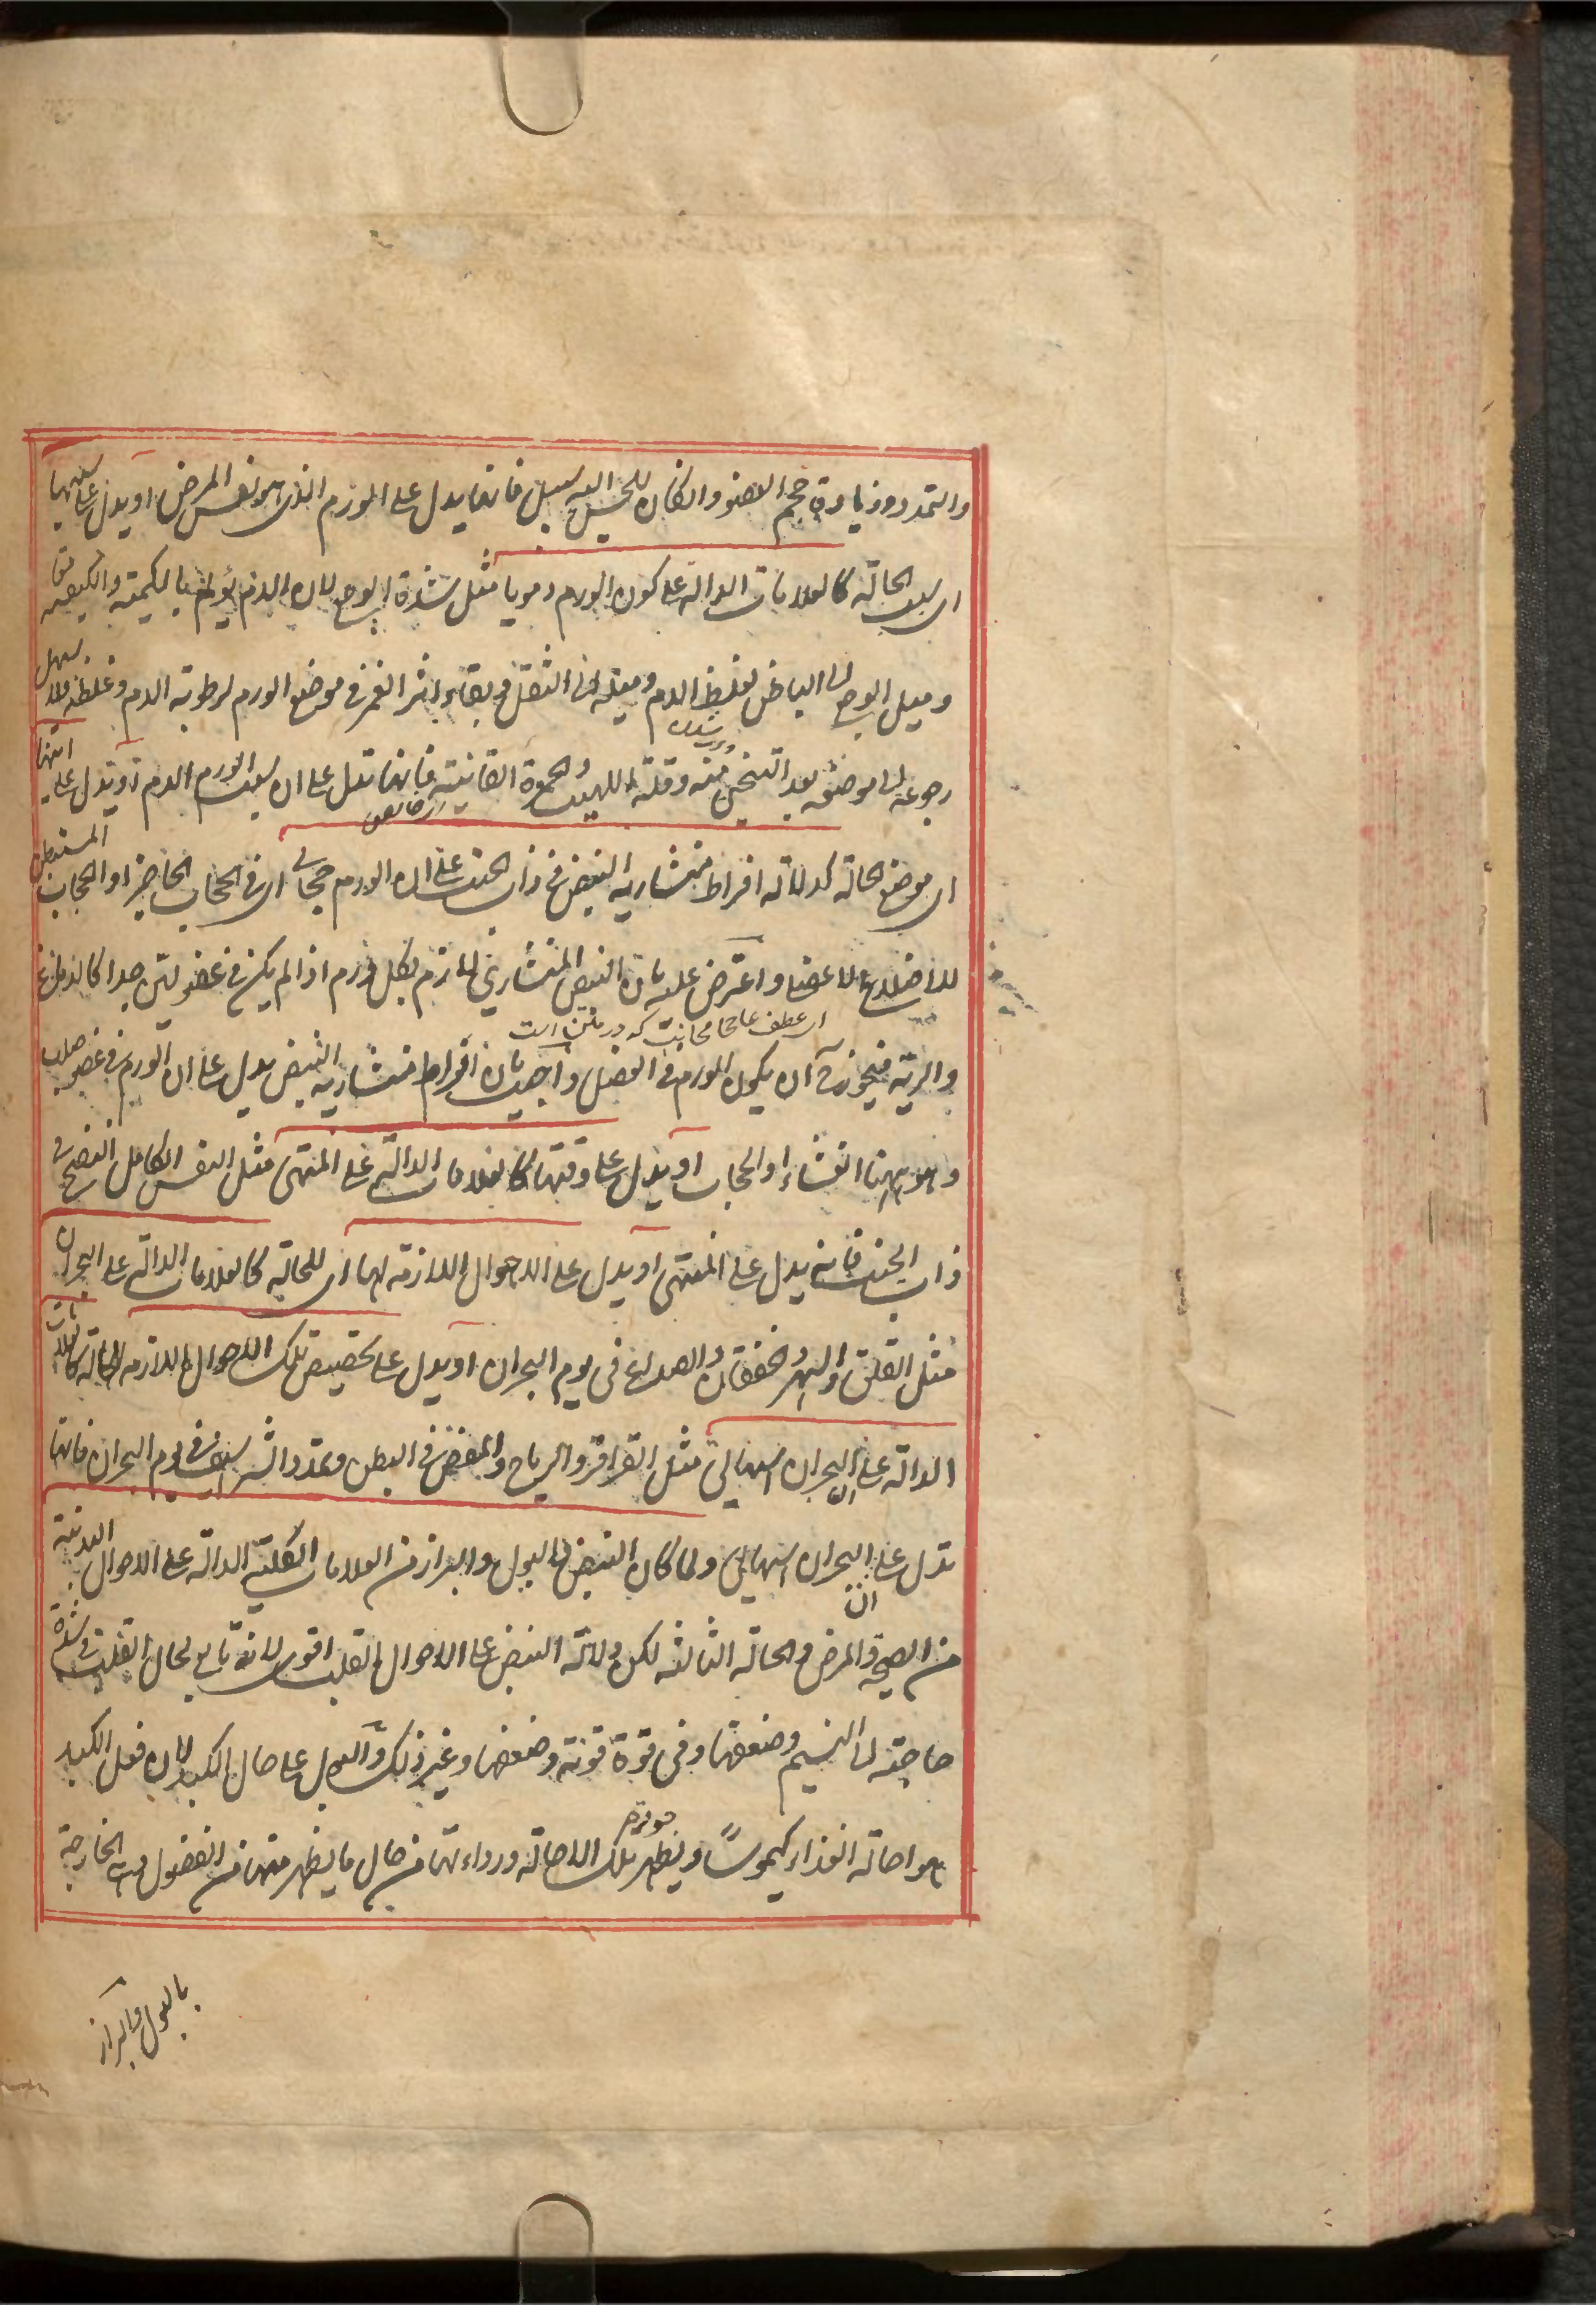 والتمدد وزيادة حجم العضو وان كان للحس اليه سبيل فانها يدل على الورم الذى هو نفس المرض او يدل على سببها
اى سبب الحالة كالعلامات الدالة على كون الورم دمويا مثل شدة الوجع لان الدم يؤلم بالكمية والكيفية
وميل الوجع الى الباطن لغلظ الدم وميله الى الثقل وبقاء اثر الغمز فى موضع الورم لرطوبة الدم وغلظه فلا يسهل
رجوعه الى موضعه بعد التنحى منه وقلة اللهيب والحمرة القانية فانها تدل على ان سبب الورم الدم او تدل على
اى موضع الحالة كدلالة افراط منشارية النبض فى ذات الجنب على ان الورم حجابى اى فى الحجاب الحاجز او الحجاب المستبطن
للاضلاع الاعضاء واعترض عليه بان النبض المنشارى لازم لكل ورم اذا لم يكن فى عضو لين جدا كالدماغ
اى عطف على حجابى است كه در متن است
والرية فيجوز ان يكون الورم فى العضل واجيب بان افراط منشارية النبض يدل على ان الورم فى عضو صلب
وهو ههنا الغشاء او الحجاب او يدل على وقتها كالعلامات الدالة على المنتهى مثل النفس الكامل النضج فى
ذات الجنب فانه يدل على المنتهى او يدل على الاحوال اللازمة لها اى للحالة كالعلامات الدالة على البحران
مثل القلق والسهر والخفقان والصداع فى يوم البحران او يدل على تخصيص تلك الاحوال اللازمة للحالة كالعلامات
الدالة على ان البحران اسهالى مثل القراقر والرياح والمغص فى البطن وتمدد الشراسيف فى يوم البحران فانها
تدل على ان البحران اسهالى ولما كان النبض والبول والبراز من العلامات الكلية الدالة على الاحوال البدنية
من الصحة والمرض والحالة الثالثة لكن دلالة النبض على الاحوال القلب اقوى لانه تابع لحال القلب فى شدة
حاجته الى النسيم وضعفها وفى قوة قوته وضعفها وغير ذلك والبول على حال الكبد لان فعل الكبد
هو احالة الغذاء كيموسًا ويظهر جودة تلك الاحالة ورداءتها من حال ما يظهر منها من الفضول الخارجة
بالبول والبراز